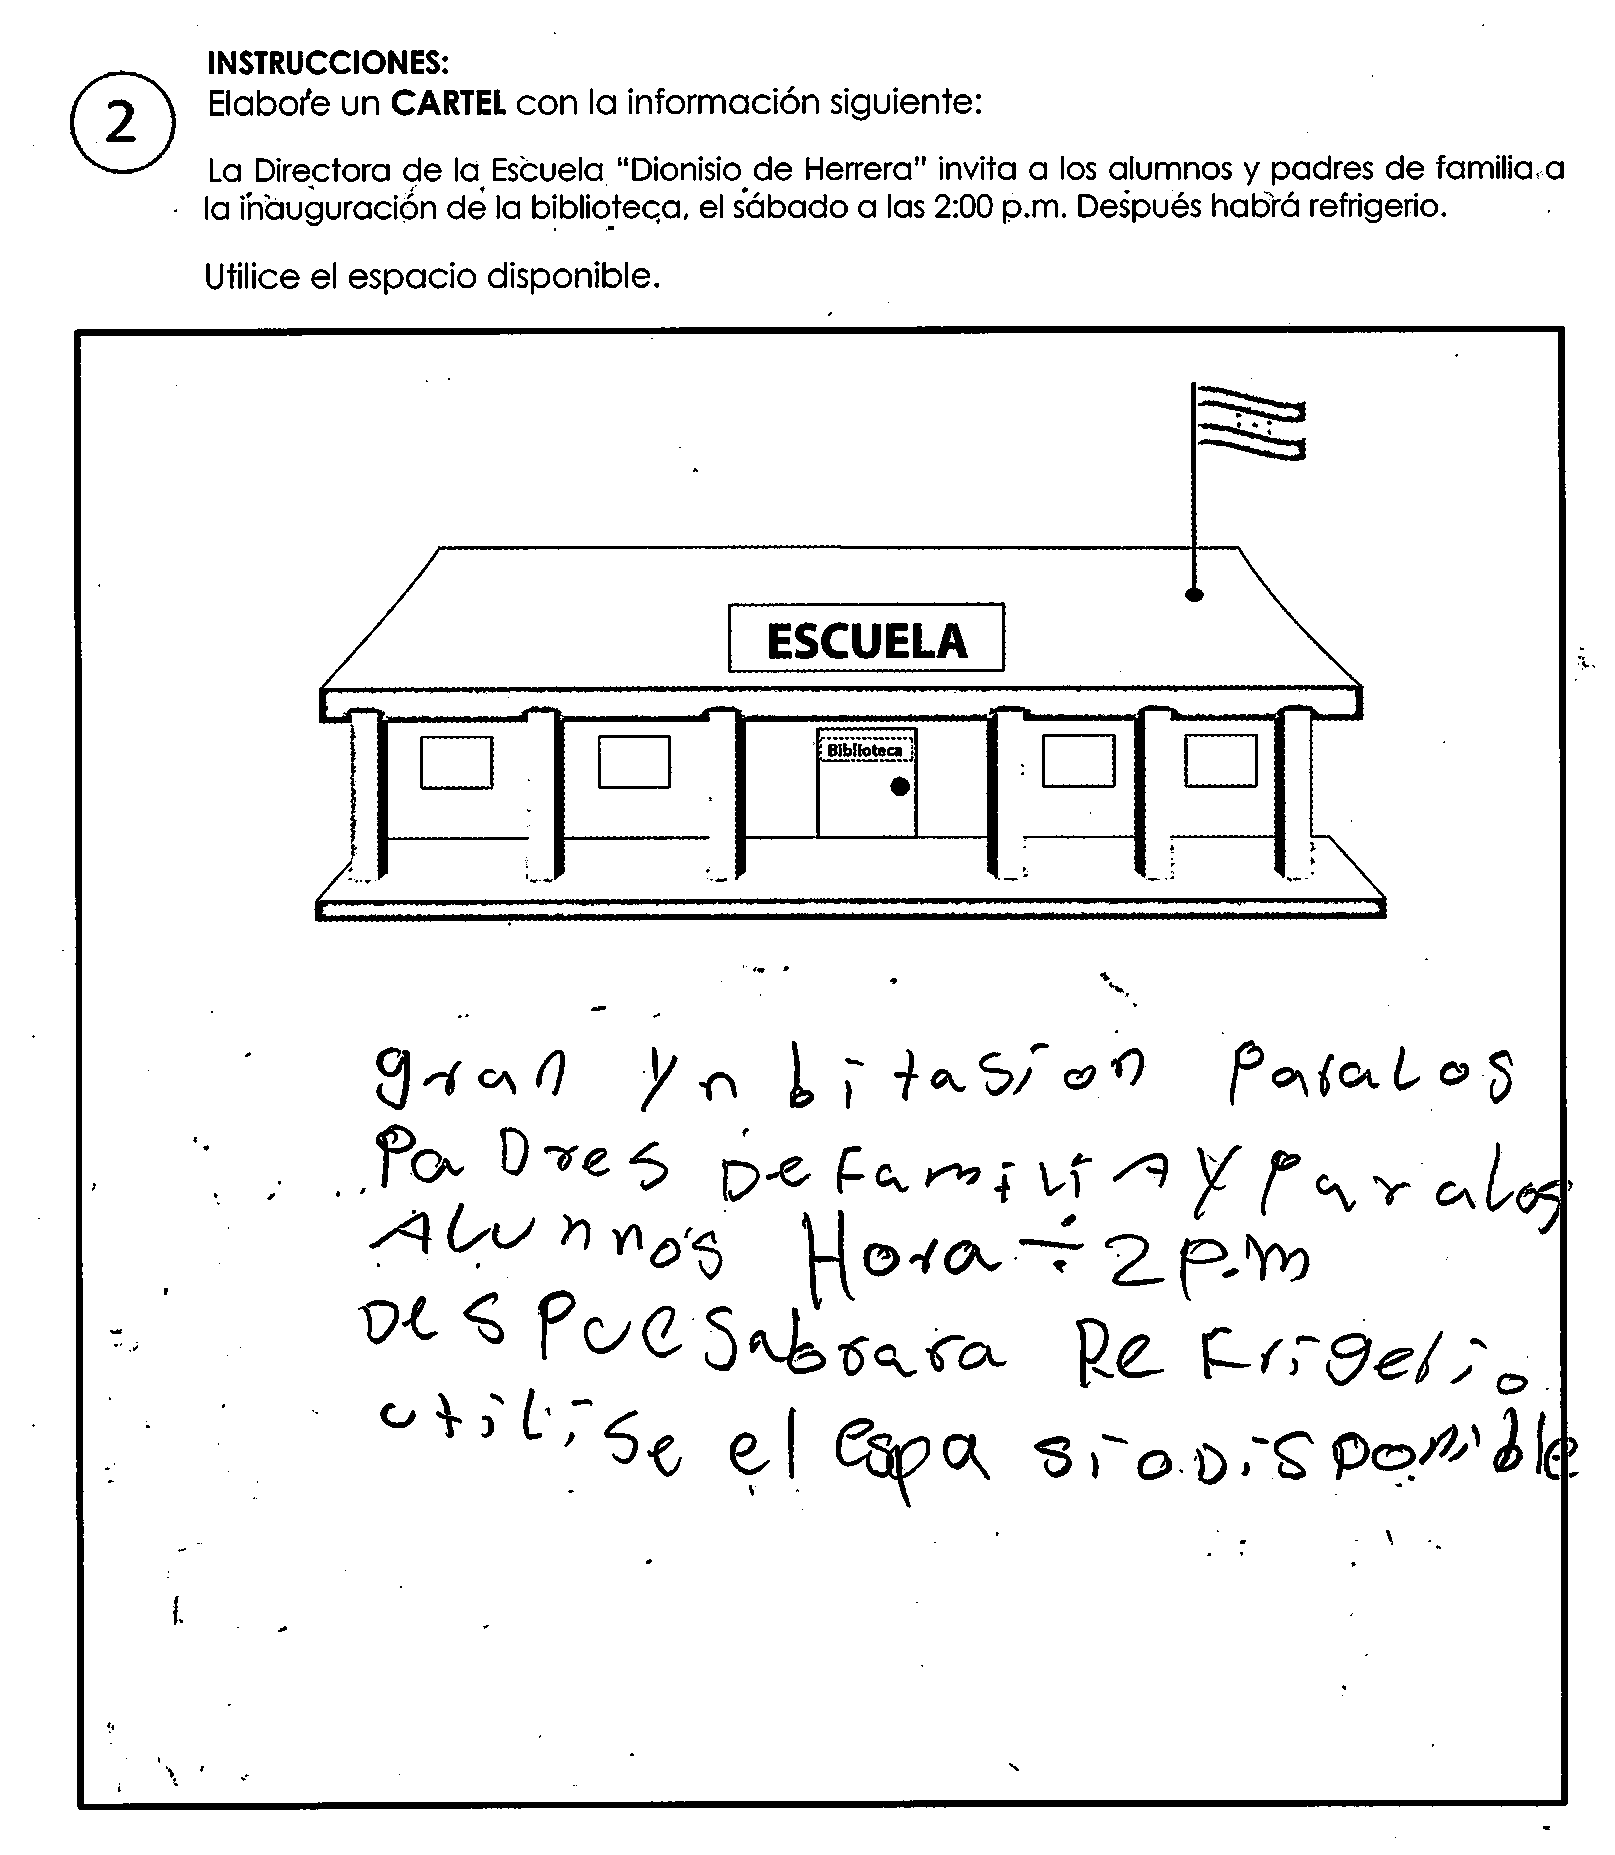 INSTRUCCIONES:
2
Elabore un CARTEL con la información siguiente:
La Directora de la Escuela "Dionisio de Herrera" invita a los alumnos y padres de familia a
la inauguración de la biblioteca, el sábado a las 2:00 p.m. Después habrá refrigerio.
Utilice el espacio disponible.
ESCUELA
Biblioteca
gran ynbitasion para los
paDres De familia y para los
Alunnos Hora ÷ 2 p.m
Despues abrara Refrigerio
utilise el espasio Disponible